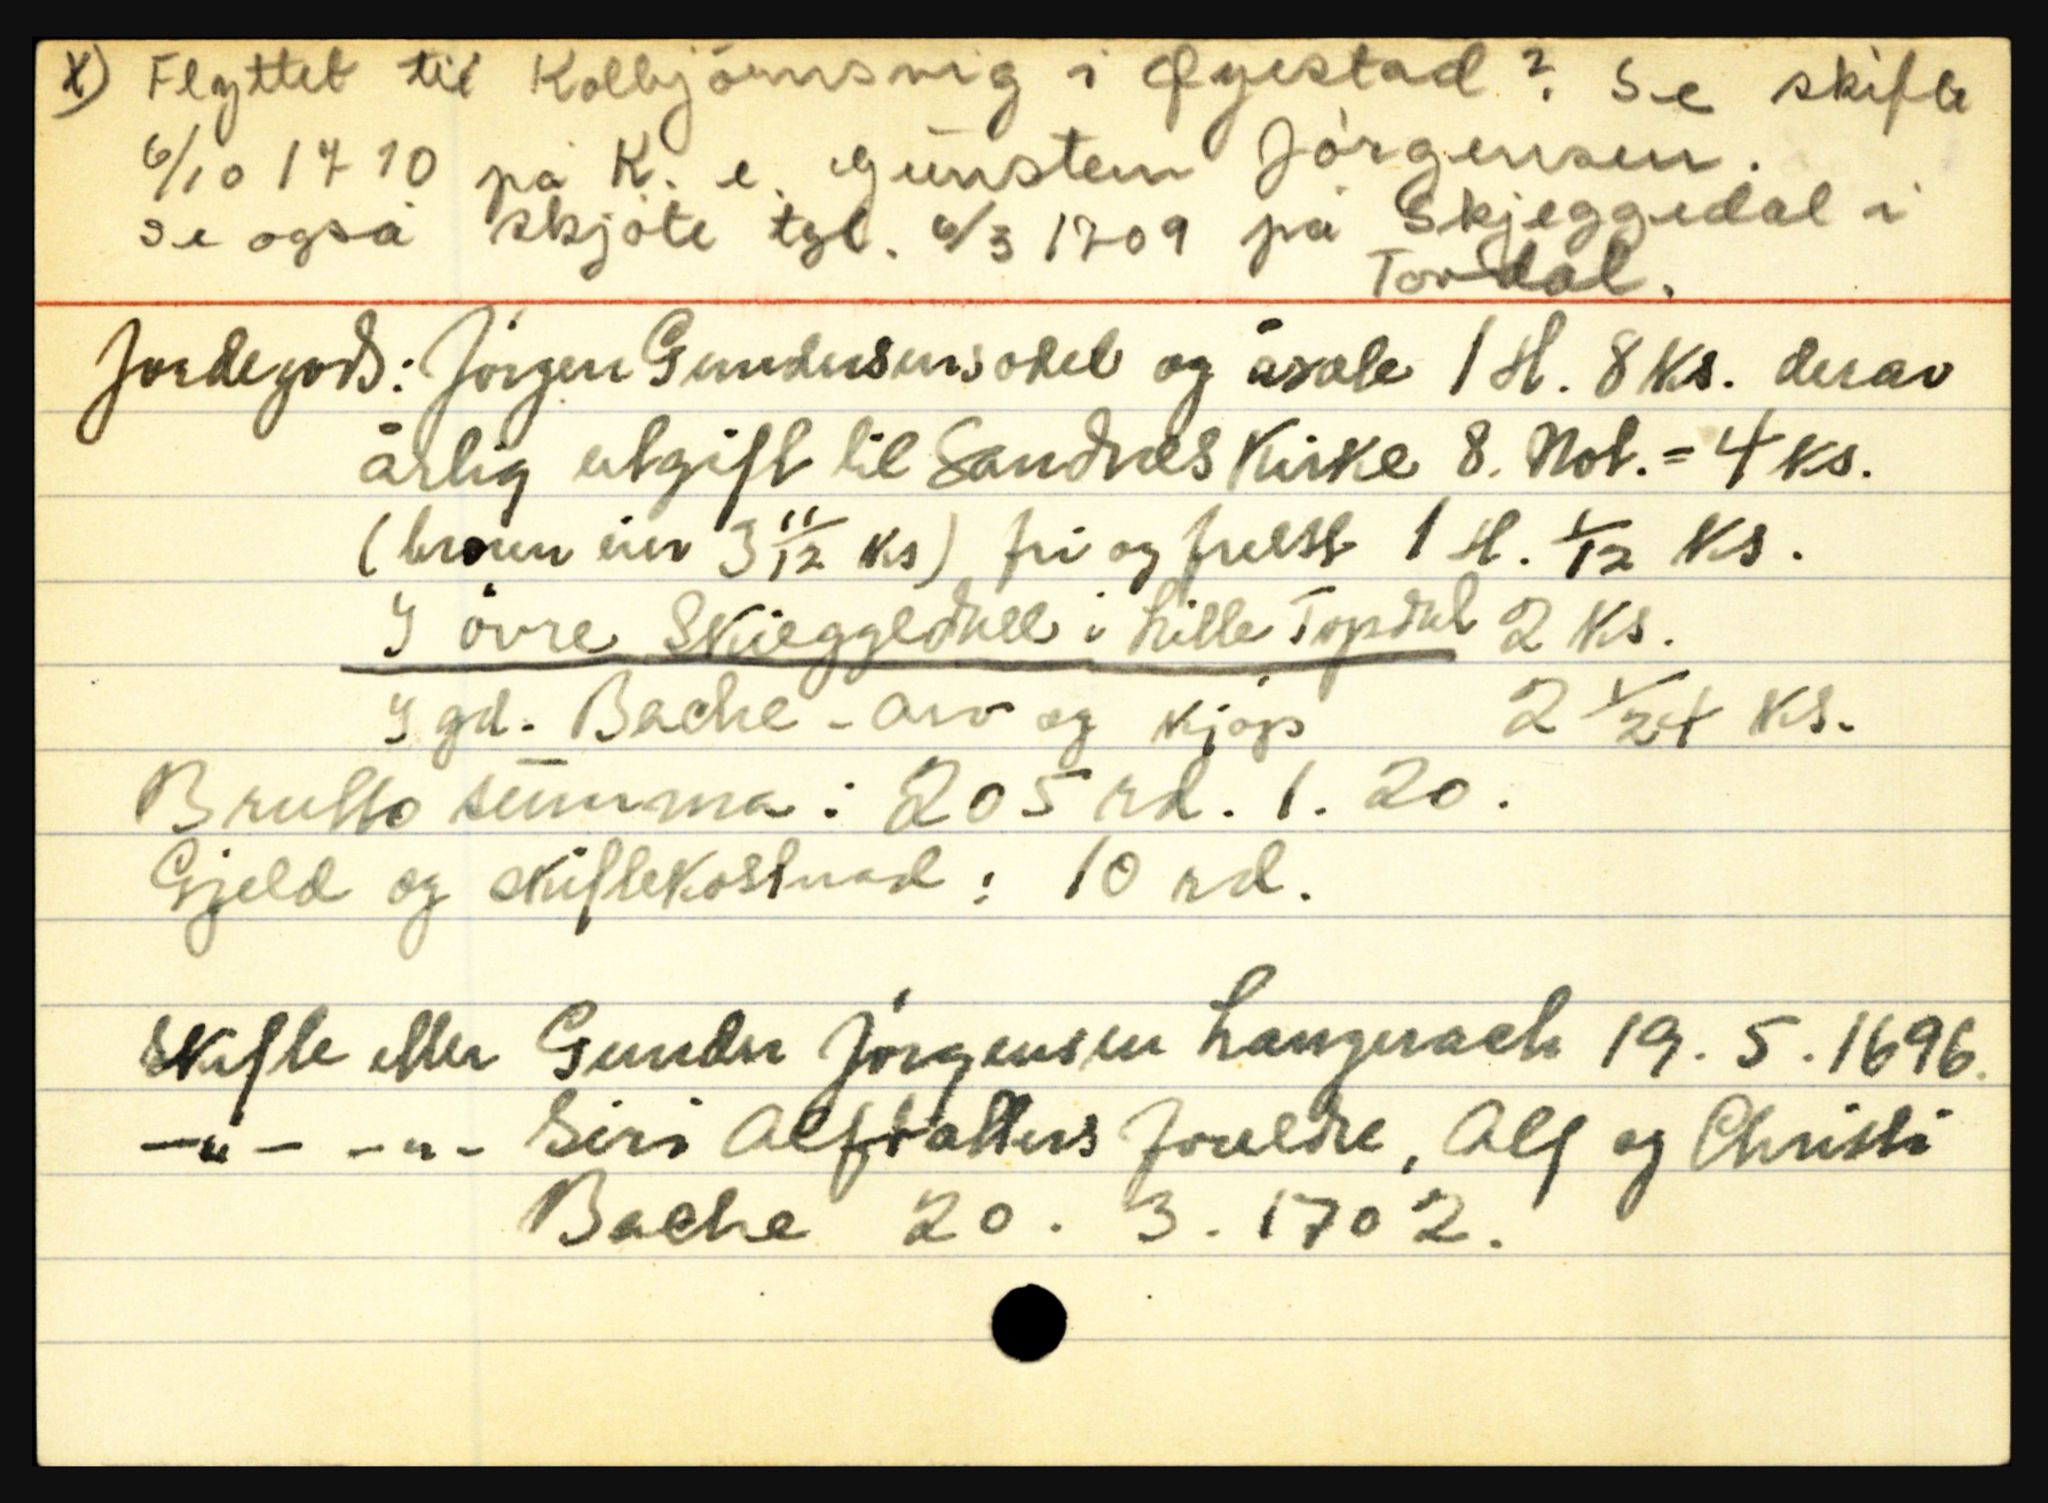 x) Flyttet til Kolbjörnsvig i Øyestad? Se skifte
6/10 1710 på K. e. Gunsten Jörgensen.
Se også skjöte tgl. 6/3 1709 på Skjeggedal i
Tovdal.
Jordegods: Jörgen Gundersens odel og åsæte 1 H. 8 Ks. derav
årlig utgift til Sandnes Kirke 8. Not. = 4 Ks.
(broren eier 3 11/12 Ks) fri og frelst 1 H. 1/12 Ks.
I övre Skieggedall i Lille Topdal 2 Ks.
I gd. Bache - arv og kjöp 2 1/24 Ks.
Brutto summa: 205 rd. 1. 20.
Gjeld og skiftekostnad: 10 rd.
Skifte etter Gunder Jörgensen Langerach 19. 5. 1696.
-"- -"- Siri Alfsdatters foreldre, Alf og Christi
Bache 20. 3. 1702.